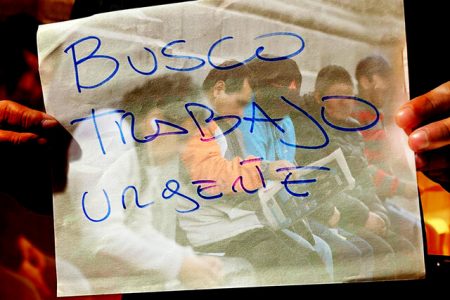 BUSCO
TRABAJO
URGENTE